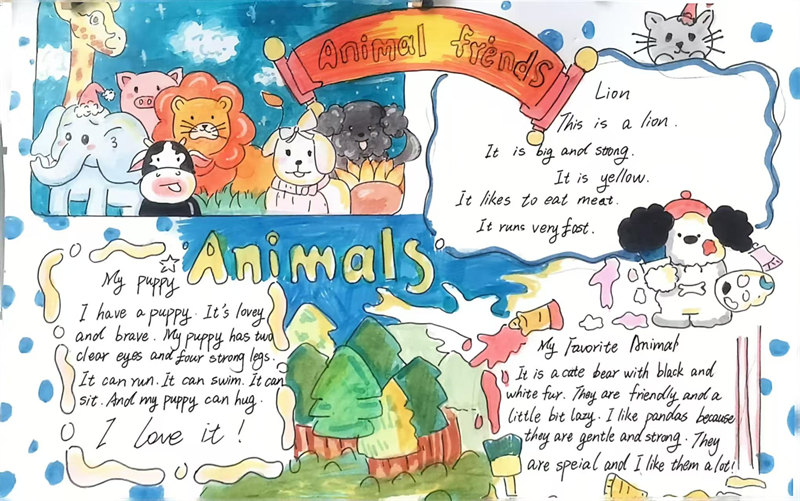 Animal friends
Lion
This is a lion.
It is big and stong.
It is yellow.
It likes to eat meat.
It runs very fast.
Animals
My puppy
I have a puppy. It's lovey
and brave. My puppy has two
clear eyes and four strong legs.
It can run. It can swim. It can
sit. And my puppy can hug.
I love it!
My Favorite Animal
It is a cate bear with black and
white fur. They are friendly and a
little bit lazy. I like pandas because
they are gentle and strong. They
are speial and I like them a lot!